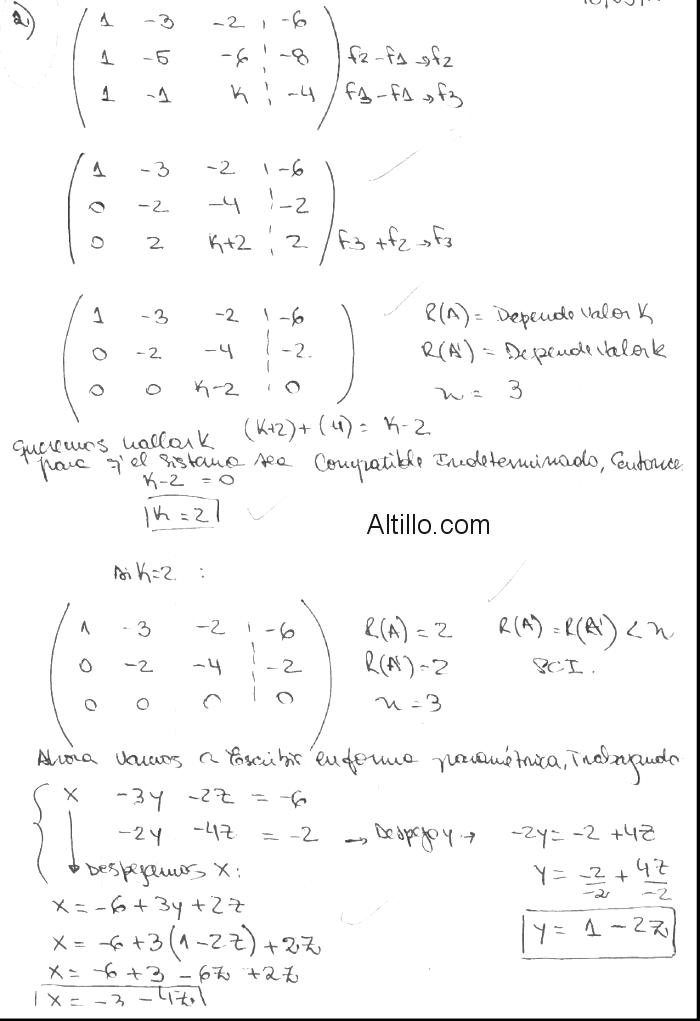 2)
1 -3 -2 | -6
1 -5 -6 | -8 f2-f1→f2
1 -1 K | -4 f3-f1→f3
1 -3 -2 | -6
0 -2 -4 | -2
0 2 K+2 | 2 f3+f2→f3
1 -3 -2 | -6 R(A) = Depende valor K
0 -2 -4 | -2. R(A') = Depende valor k
0 0 K-2 | 0 n = 3
(K+2)+(-4) = K-2
queremos hallar K
para q' el sistema sea Compatible Indeterminado, Entonce
K-2 = 0
K = 2
Altillo.com
si K=2 :
1 -3 -2 | -6 R(A) = 2 R(A) = R(A') < n
0 -2 -4 | -2 R(A') = 2 SCI.
0 0 0 | 0 n = 3
Ahora vamos a Escribir en forma paramétrica, Trabajando
x -3y -2z = -6
-2y -4z = -2 → Despejo y → -2y = -2 + 4z
Despejamos x: y = -2/-2 + 4z/-2
x = -6 + 3y + 2z
y = 1 - 2z
x = -6 + 3(1-2z) + 2z
x = -6 + 3 - 6z + 2z
x = -3 - 4z